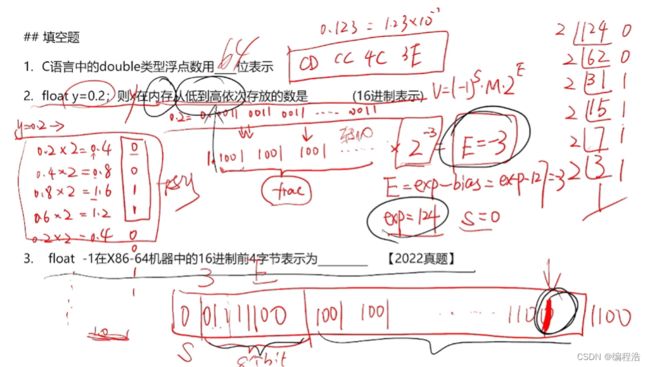 ## 填空题
0.123 = 1.23×10⁻¹
CD CC 4C 3E
1. C语言中的double类型浮点数用 64 位表示
2. float y=0.2; 则y在内存从低到高依次存放的数是 (16进制表示)
V=(-1)^S·M·2^E
y=0.2→
0.2×2=0.4 0
0.4×2=0.8 0
0.8×2=1.6 1
0.6×2=1.2 1
0.2×2=0.4 0
0011 0011 ...... 0011
1.1001 1001 1001 ...... × 2⁻³ = E=-3
frac
E=exp-bias=exp-127=-3
exp=124 S=0
2 124 0
2 62 0
2 31 1
2 15 1
2 7 1
2 3 1
1
3. float -1在X86-64机器中的16进制前4字节表示为 【2022真题】
3 E
0 01111100 1001 1001 ...... 1100 1100
S 8bit
CSDN @编程浩